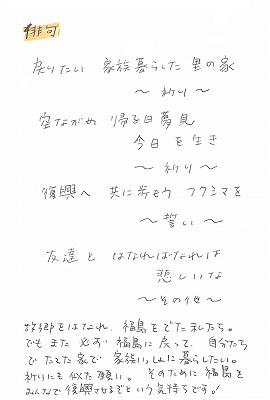 俳句
戻りたい 家族暮らした 里の家
〜祈り〜
空ながめ 帰る日夢見
今日を生き
〜祈り〜
復興へ 共に歩もう フクシマを
〜誓い〜
友達と はなればなれは
悲しいな
〜その他〜
故郷をはなれ、福島をでた私たち。
でもまた必ず福島に戻って、自分たち
でたてた家で家族いっしょに暮らしたい。
祈りにも似た願い。そのために福島を
みんなで復興させるぞという気持ちです!